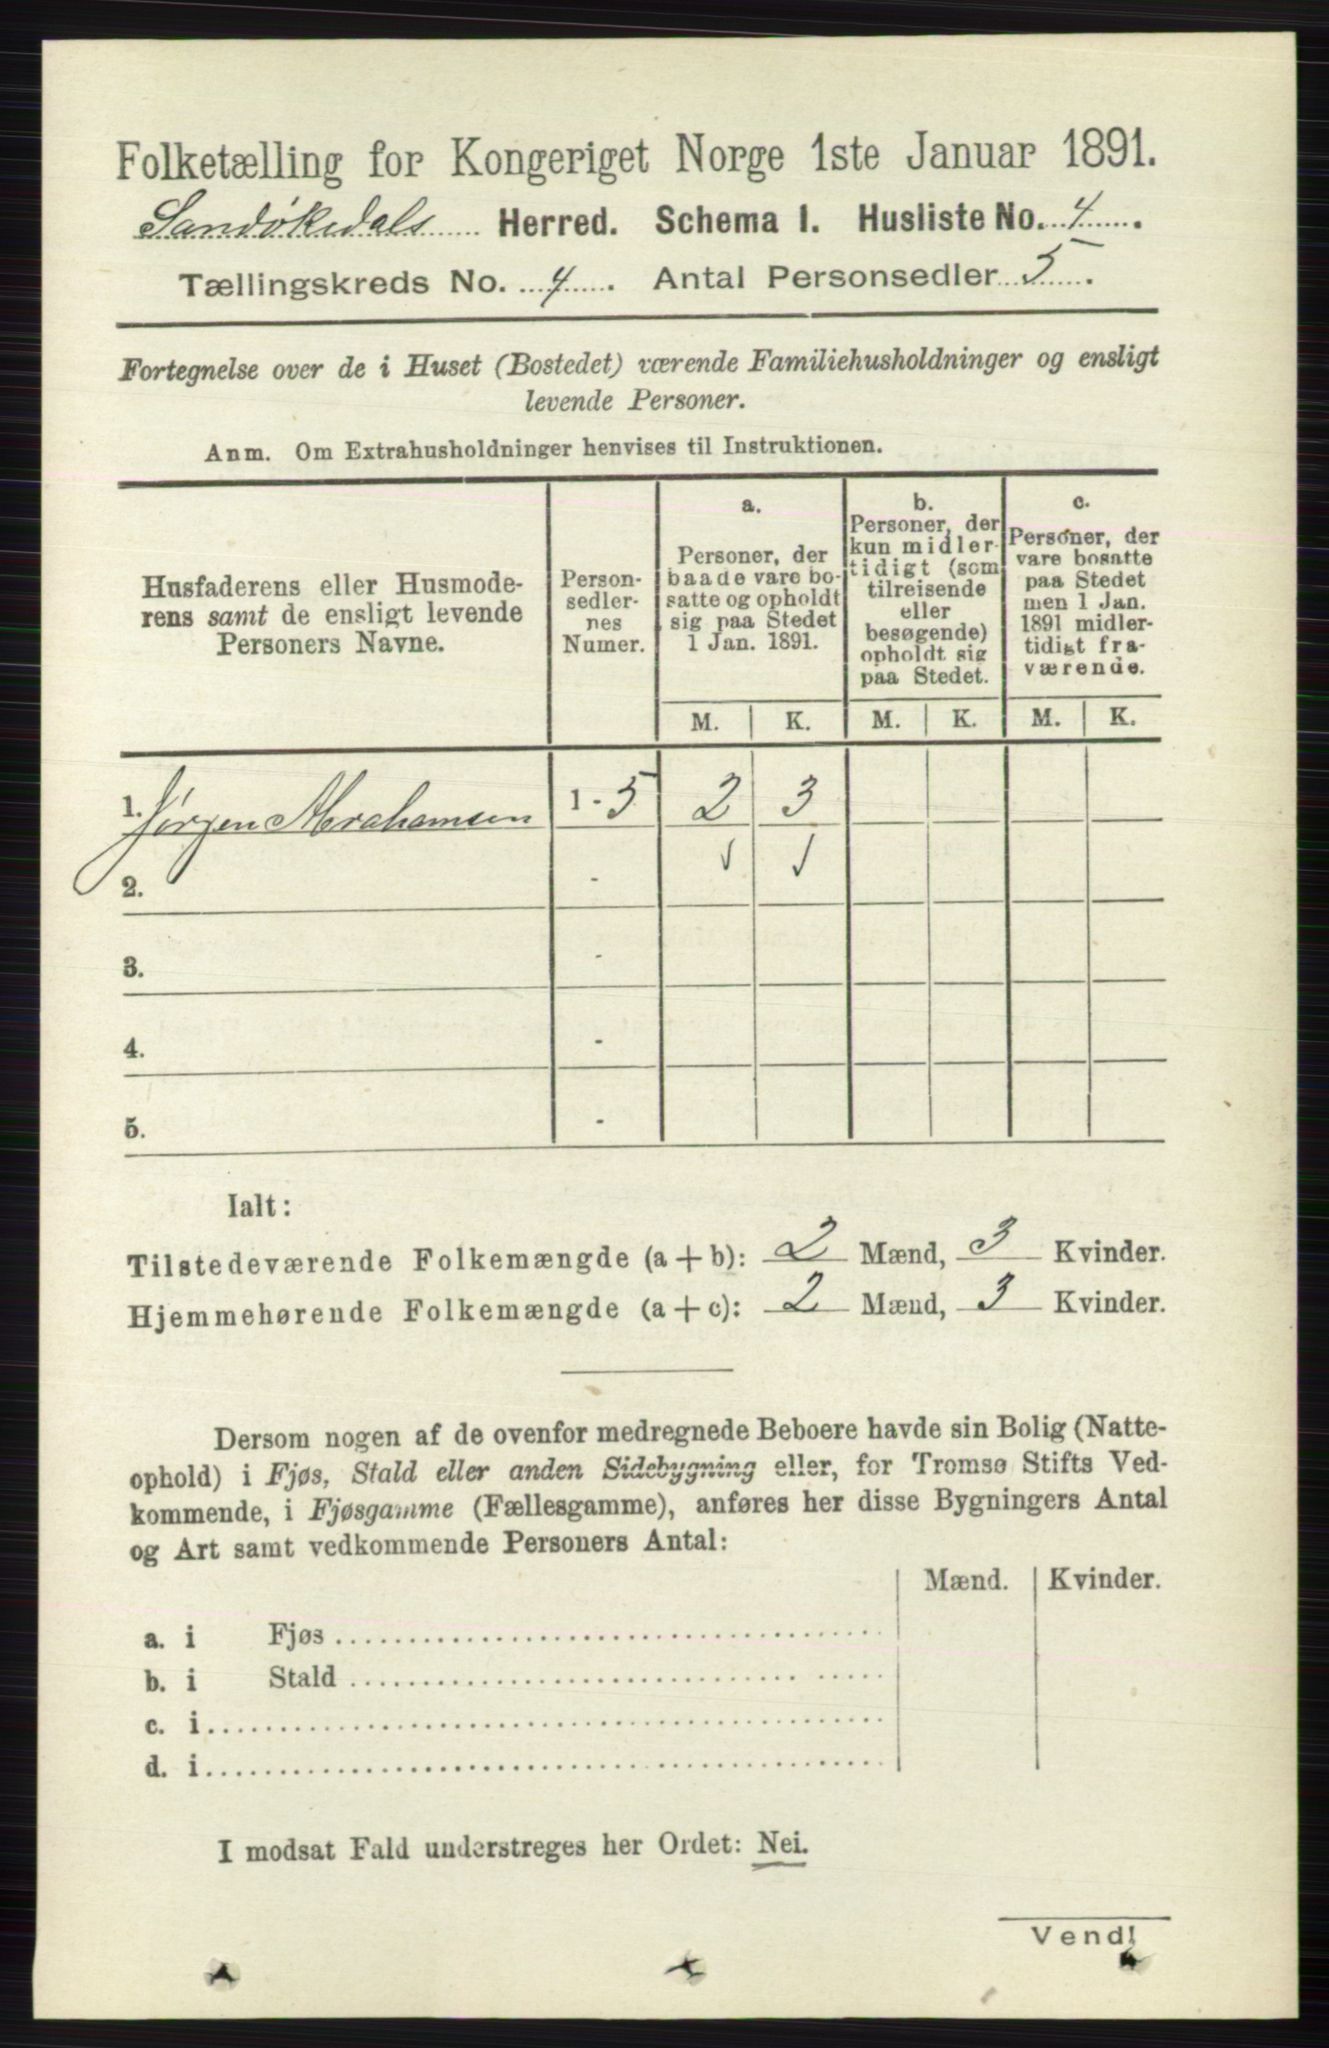 Folketælling for Kongeriget Norge 1ste Januar 1891.
Sandøkedals Herred. Schema 1. Husliste No. 4.
Tællingskreds No. 4. Antal Personsedler 5.
Fortegnelse over de i Huset (Bostedet) værende Familiehusholdninger og ensligt
levende Personer.
Anm. Om Extrahusholdninger henvises til Instruktionen.
Husfaderens eller Husmode-
rens samt de ensligt levende
Personers Navne.
Person-
sedler-
nes
Numer.
a.
Personer, der
baade vare bo-
satte og opholdt
sig paa Stedet
1 Jan. 1891.
b.
Personer, der
kun midler-
tidigt (som
tilreisende
eller
besøgende)
opholdt sig
paa Stedet.
c.
Personer, der
vare bosatte
paa Stedet
men 1 Jan.
1891 midler-
tidigt fra-
værende.
M. K. M. K. M. K.
1. Jørgen Abrahamsen 1 - 5 2 3
2. -
3. -
4. -
5. -
Ialt:
Tilstedeværende Folkemængde (a + b): 2 Mænd, 3 Kvinder.
Hjemmehørende Folkemængde (a + c): 2 Mænd, 3 Kvinder.
Dersom nogen af de ovenfor medregnede Beboere havde sin Bolig (Natte-
ophold) i Fjøs, Stald eller anden Sidebygning eller, for Tromsø Stifts Ved-
kommende, i Fjøsgamme (Fællesgamme), anføres her disse Bygningers Antal
og Art samt vedkommende Personers Antal:
Mænd. Kvinder.
a. i Fjøs
b. i Stald
c. i
d. i
I modsat Fald understreges her Ordet: Nei.
Vend!